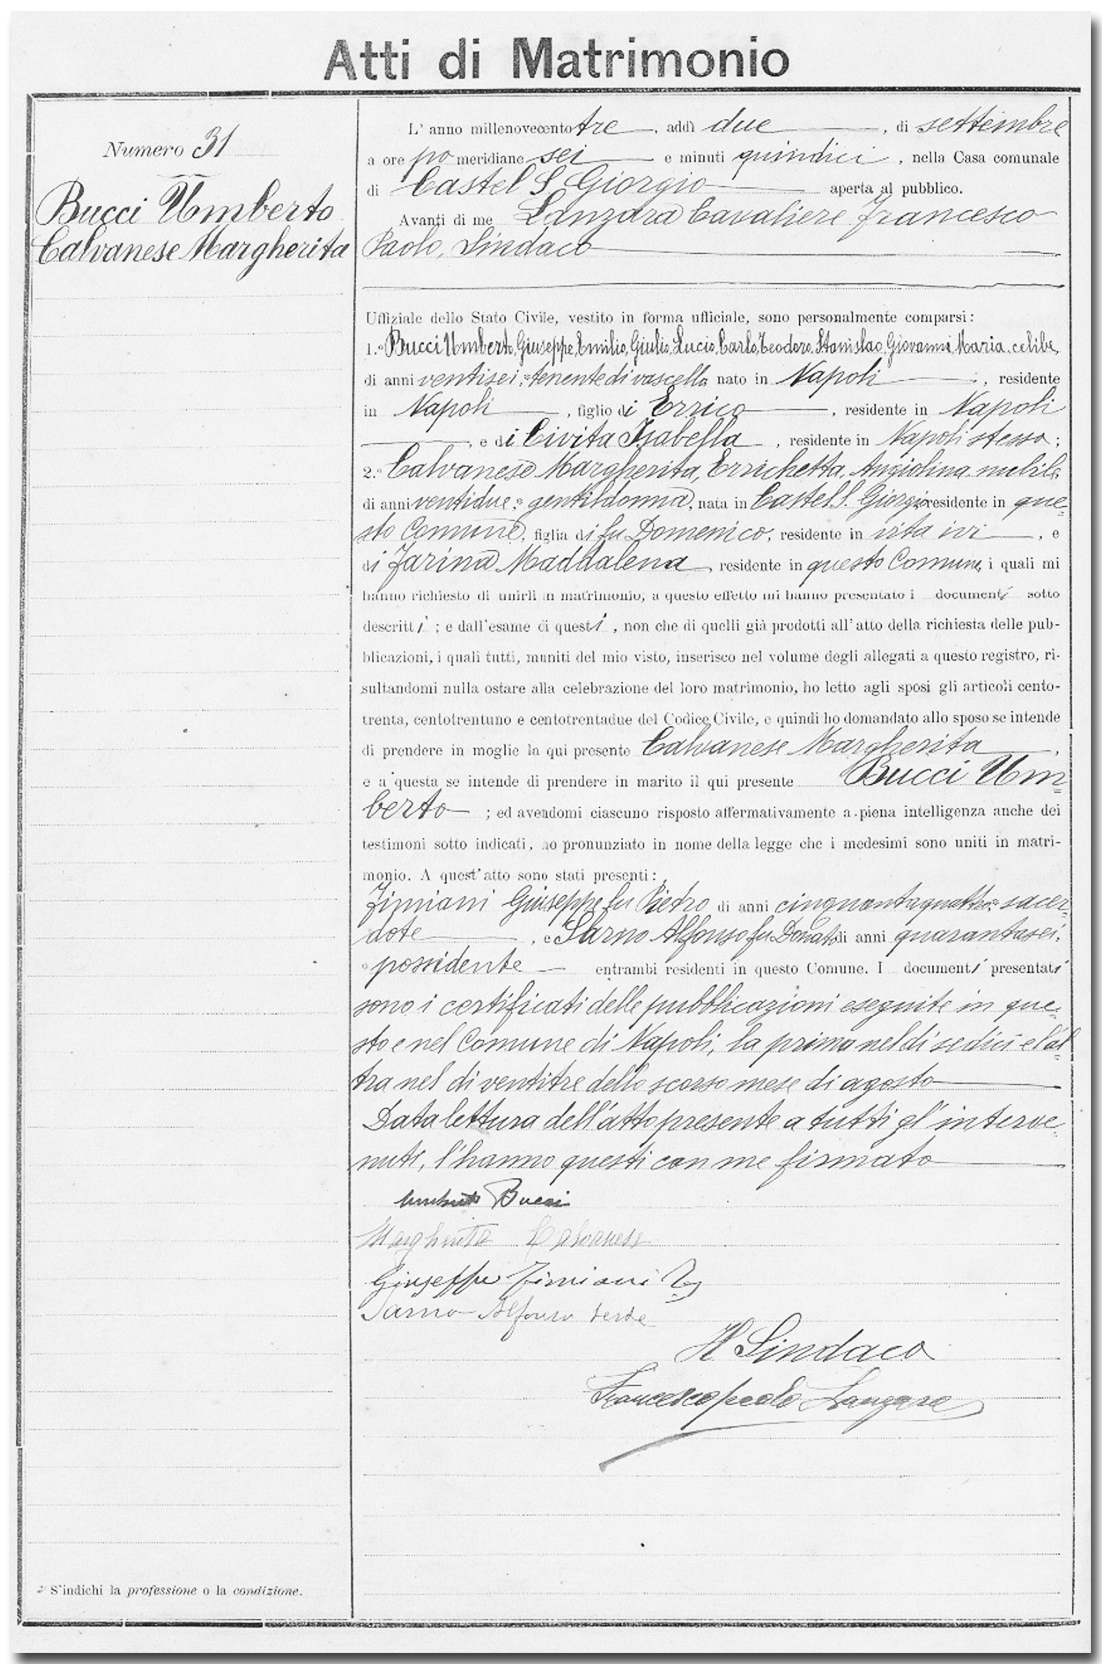 Atti di Matrimonio
Numero 31
Bucci Umberto
Calvanese Margherita
L' anno millenovecento tre, addì due, di settembre
a ore po meridiane sei e minuti quindici, nella Casa comunale
di Castel S. Giorgio aperta al pubblico.
Avanti di me Lanzara Cavaliere Francesco
Paolo, Sindaco
Uffiziale dello Stato Civile, vestito in forma ufficiale, sono personalmente comparsi:
1.° Bucci Umberto, Giuseppe, Emilio, Giulio, Lucio, Carlo, Teodoro, Stanislao, Giovanni, Maria, celibe,
di anni ventisei, tenente di vascello nato in Napoli, residente
in Napoli, figlio di Errico, residente in Napoli
, e di Civita Isabella, residente in Napoli stesso;
2.° Calvanese Margherita, Errichetta, Angiolina, nubile
di anni ventidue, gentildonna, nata in Castel S. Giorgio residente in que=
sto Comune, figlia di fu Domenico, residente in vita ivi, e
di Farina Maddalena, residente in questo Comune, i quali mi
hanno richiesto di unirli in matrimonio, a questo effetto mi hanno presentato i documenti sotto
descritti; e dall'esame di questi, non che di quelli già prodotti all'atto della richiesta delle pub-
blicazioni, i quali tutti, muniti del mio visto, inserisco nel volume degli allegati a questo registro, ri-
sultandomi nulla ostare alla celebrazione del loro matrimonio, ho letto agli sposi gli articoli cento-
trenta, centotrentuno e centotrentadue del Codice Civile, e quindi ho domandato allo sposo se intende
di prendere in moglie la qui presente Calvanese Margherita,
e a questa se intende di prendere in marito il qui presente Bucci Um=
berto; ed avendomi ciascuno risposto affermativamente a piena intelligenza anche dei
testimoni sotto indicati, ho pronunziato in nome della legge che i medesimi sono uniti in matri-
monio. A quest'atto sono stati presenti:
Fimiani Giuseppe fu Pietro di anni cinquantaquattro, sacer=
dote, e Sarno Alfonso fu Donato di anni quarantasei,
possidente entrambi residenti in questo Comune. I documenti presentati
sono i certificati delle pubblicazioni eseguite in que=
sto e nel Comune di Napoli, la prima nel dì sedici e l'al=
tra nel dì ventitre dello scorso mese di agosto
Data lettura dell'atto presente a tutti gl'interve=
nuti, l'hanno questi con me firmato
Umberto Bucci
Margherita Calvanese
Giuseppe Fimiani
Sarno Alfonso teste
Il Sindaco
Francescopaolo Lanzara
* S'indichi la professione o la condizione.